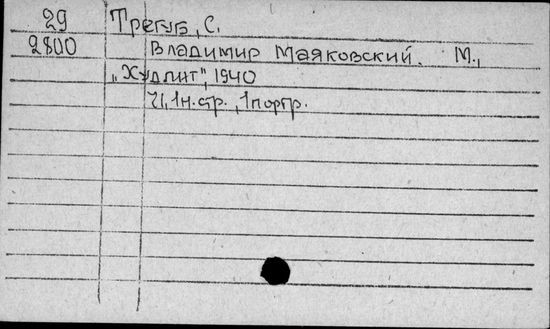 29 Трегуб, С.
2800 Владимир Маяковский. М.,
„Худлит", 1940
71, 1н.стр., 1портр.